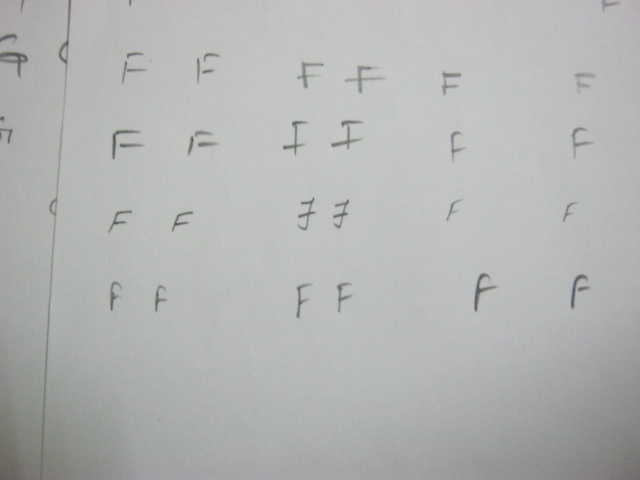 F F F F F F
F F F F F F
F F F F F F
F F F F F F